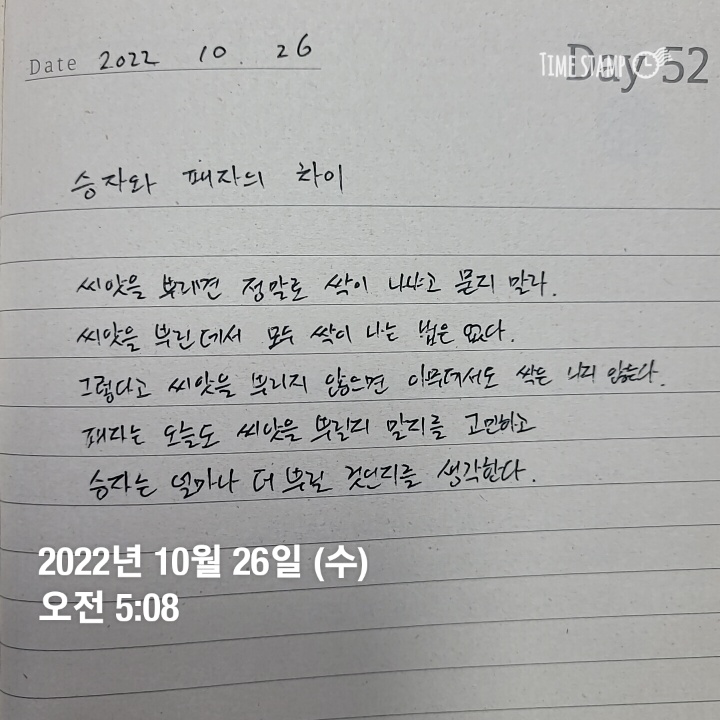 Date 2022 10. 26
Day 52
TIME STAMP
승자와 패자의 차이
씨앗을 뿌리면 정말로 싹이 나냐고 묻지 말라.
씨앗을 뿌린데서 모두 싹이 나는 법은 없다.
그렇다고 씨앗을 뿌리지 않으면 아무데서도 싹은 나지 않는다.
패자는 오늘도 씨앗을 뿌릴지 말지를 고민하고
승자는 얼마나 더 뿌릴 것인지를 생각한다.
2022년 10월 26일 (수)
오전 5:08